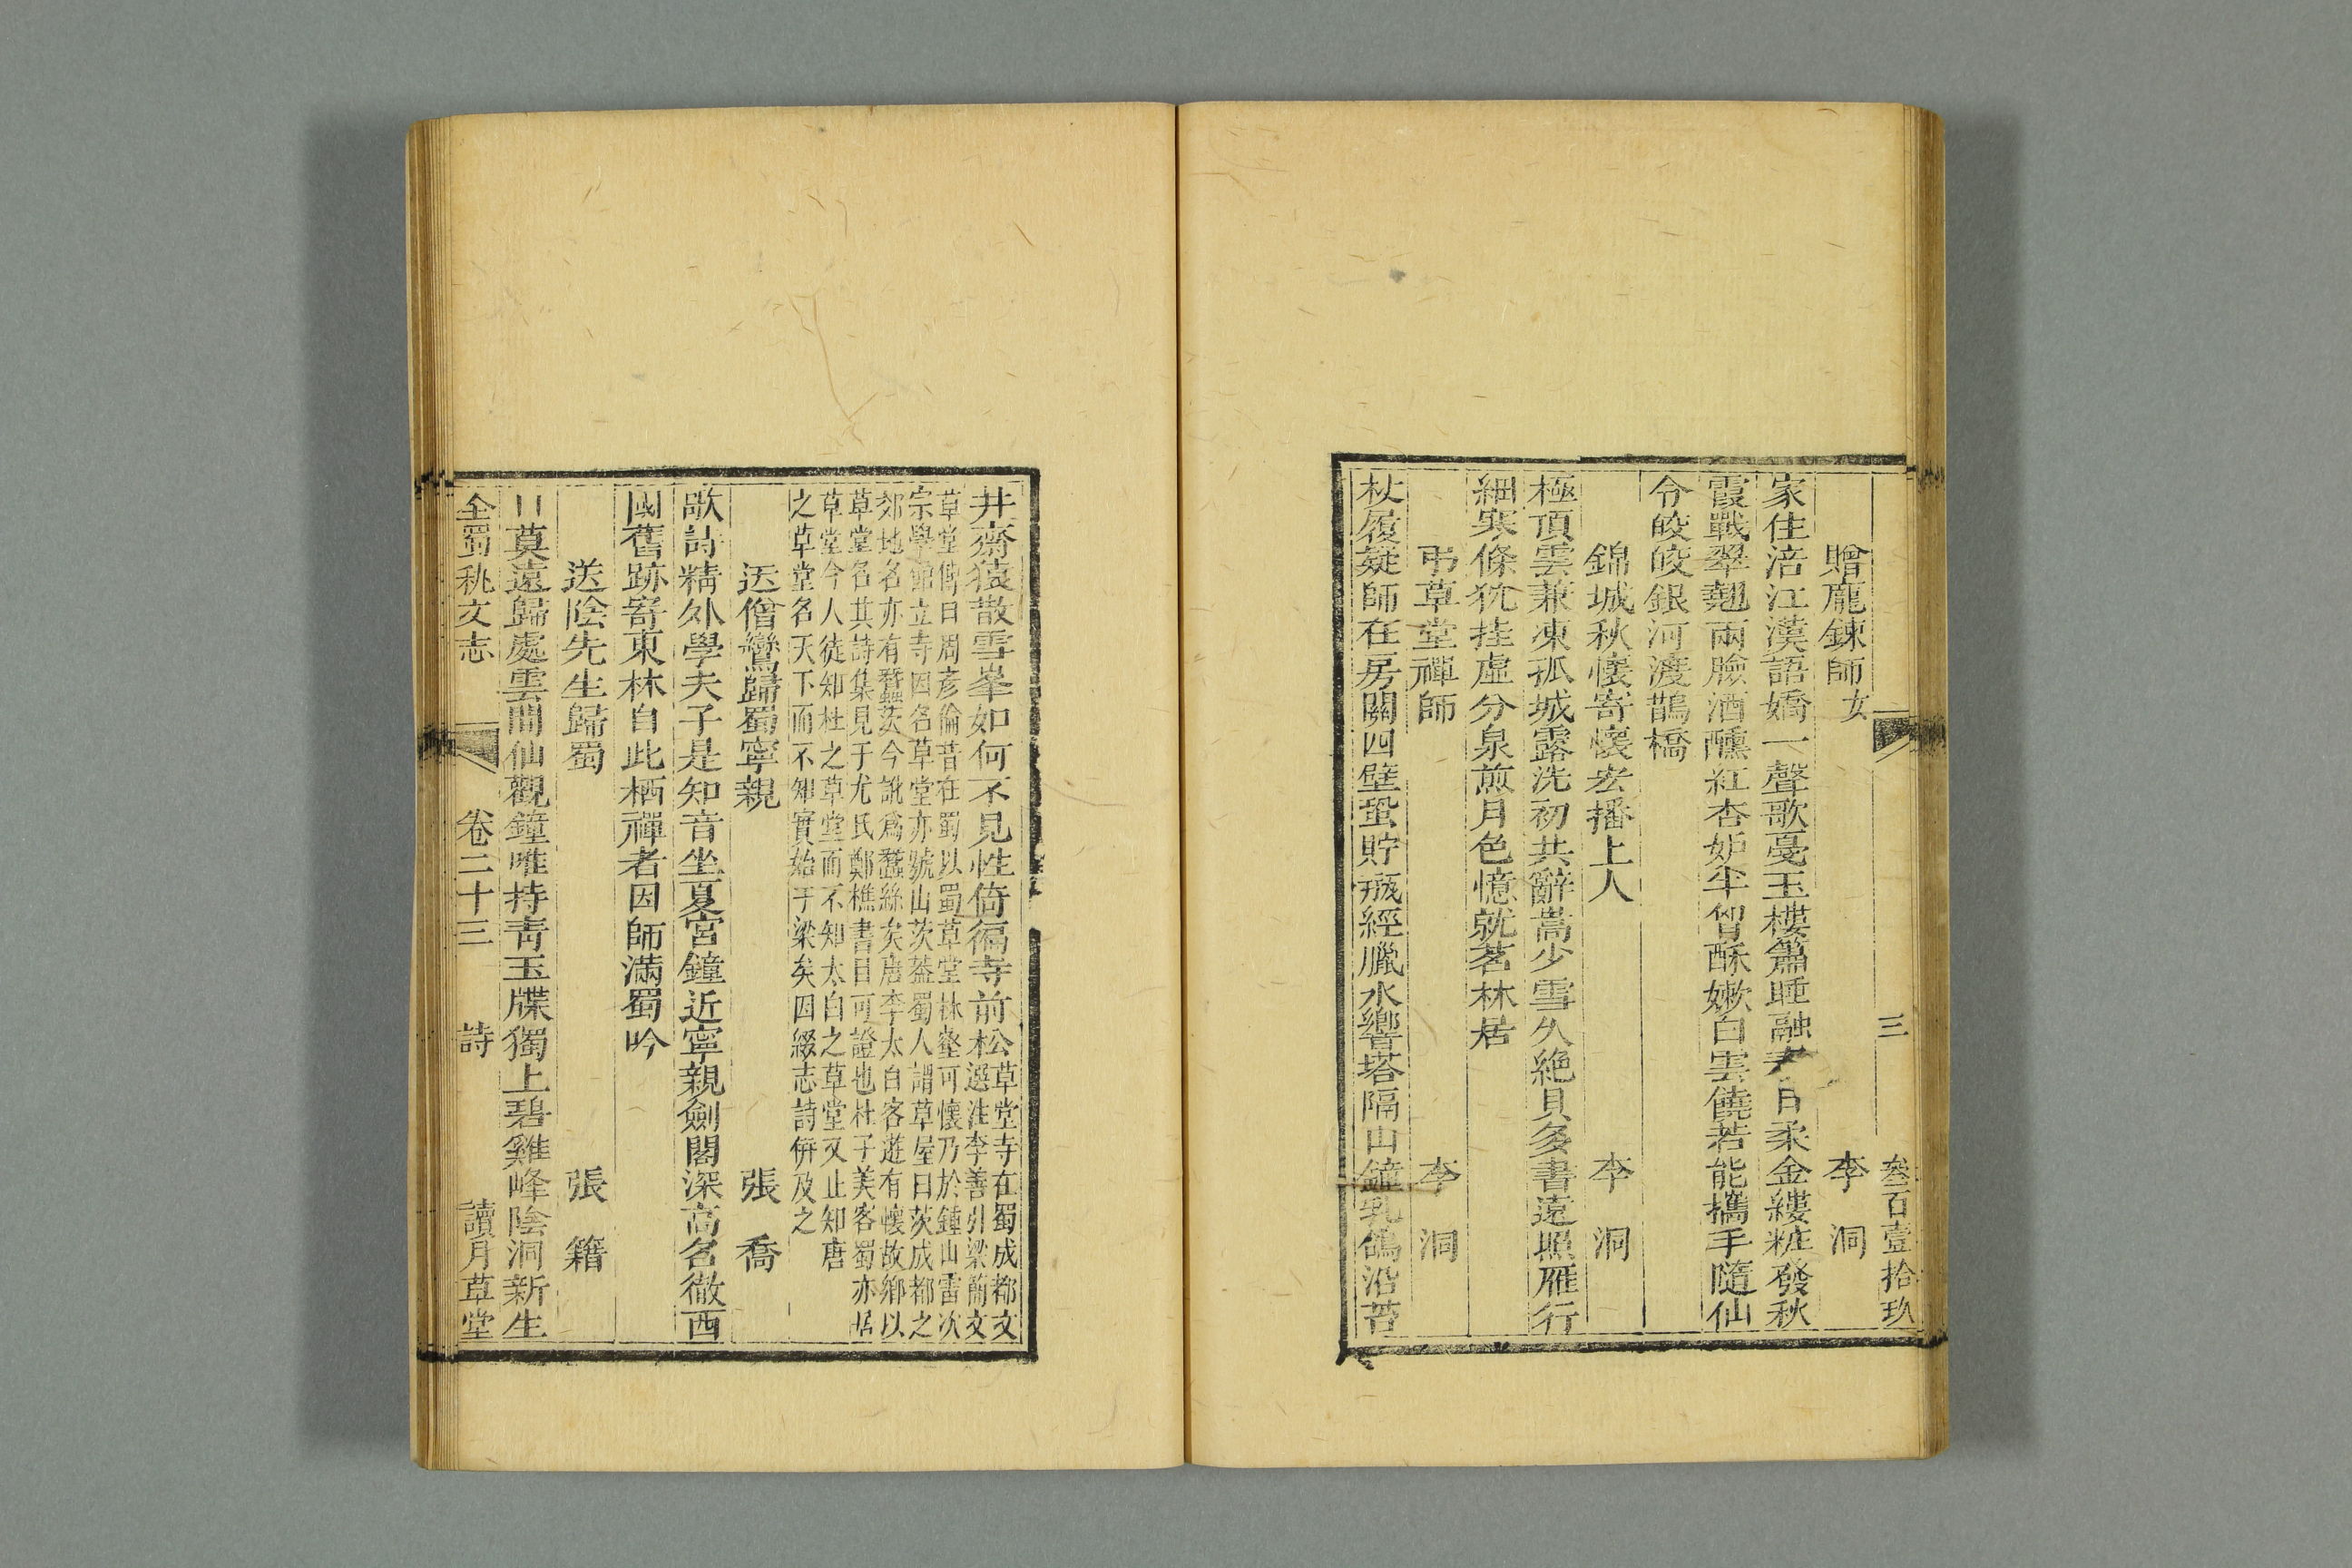 三 叄百壹拾玖
贈龐鍊師女 李洞
家住涪江漢語嬌一聲歌戞玉樓簫睡融 月柔金縷粧發秋
霞戰翠翹兩臉酒醺紅杏妒半胷酥嫰白雲饒若能攜手隨仙
令皎皎銀河渡鵲橋
錦城秋懷寄懷宏播上人 李洞
極頂雲兼凍孤城露洗初共辭嵩少雪久絶貝多書遠照雁行
細寒條狖挂虛分泉煎月色憶就茗林居
弔草堂禪師 李洞
杖履疑師在房關四壁蛩貯缾經臘水響塔隔山鐘乳鴿沿苔
井齋猿散雪峯如何不見性倚徧寺前松草堂寺在蜀成都文
選注李善引梁簡文
草堂傳曰周彥倫昔在蜀以蜀草堂林壑可懷乃於鍾山雷次
宗學館立寺因名草堂亦號山茨葢蜀人謂草屋曰茨成都之
郊地名亦有蠶茨今訛爲蠶絲矣唐李太白客遊有懷故鄉以
草堂名其詩集見于尤氏鄭樵書目可證也杜子美客蜀亦居
草堂今人徒知杜之草堂而不知太白之草堂又止知唐
之草堂名天下而不知實始于梁矣因綴志詩併及之
送僧鸞歸蜀寧親 張喬
歌詩精外學夫子是知音坐夏宮鐘近寧親劍閣深高名徹西
國舊跡寄東林自此栖禪者因師滿蜀吟
送陰先生歸蜀 張籍
日莫遠歸處雲間仙觀鐘唯持青玉牒獨上碧雞峰陰洞新生
全蜀秇文志 卷二十三 詩 讀月草堂